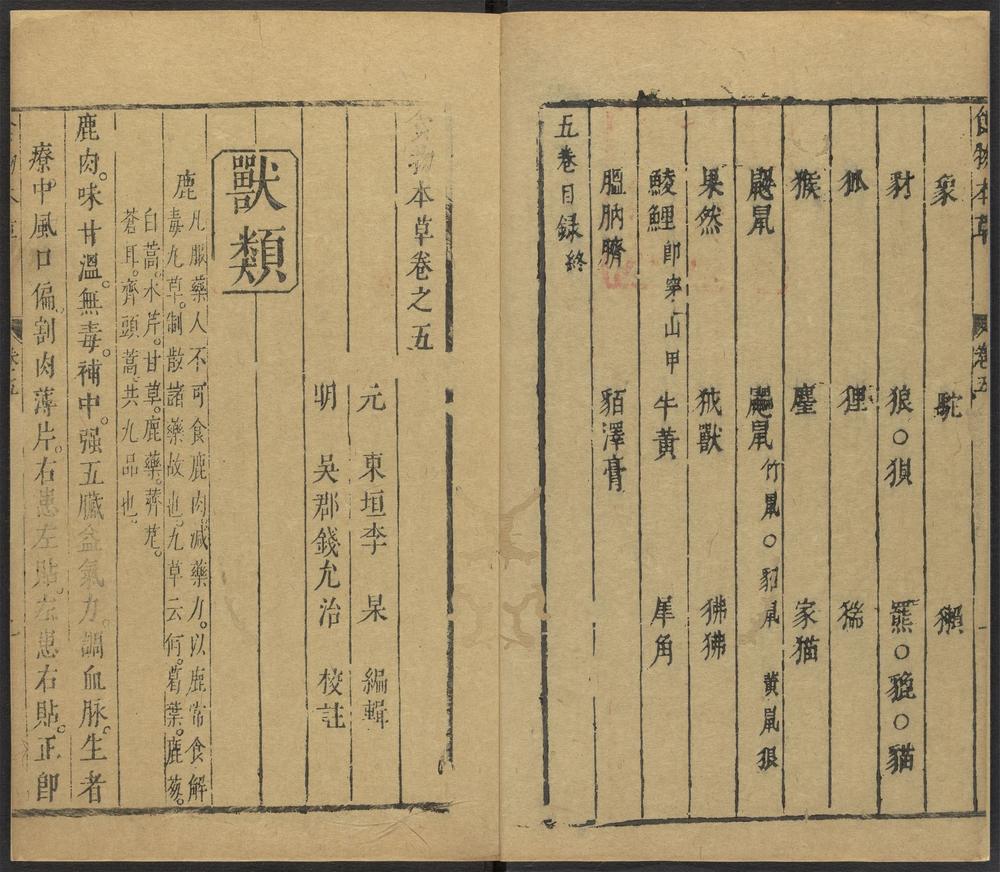 食物本草 卷五
象 駝 獺
豺 狼○狽 羆○貔○貓
狐 狸 猯
猴 麈 家猫
鼹鼠 鼴鼠 竹鼠○貂鼠 黃鼠狼
果然 狨獸 狒狒
鯪鯉 即穿山甲 牛黃 犀角
膃肭臍 貊澤膏
五卷目録終
食物本草卷之五
元 東垣李 杲 編輯
明 吳郡錢允治 校註
獸類
鹿 凡服藥人不可食鹿肉。減藥力。以鹿常食解
毒九草。制散諸藥故也。九草云何。葛葉。鹿葱。
白蒿。水芹。甘草。鹿藥。薺苨。
蒼耳。齊頭蒿。共九品也。
鹿肉。味甘溫。無毒。補中。强五臟益氣力。調血脉。生者
療中風口偏。割肉薄片。右患左貼。左患右貼。正即